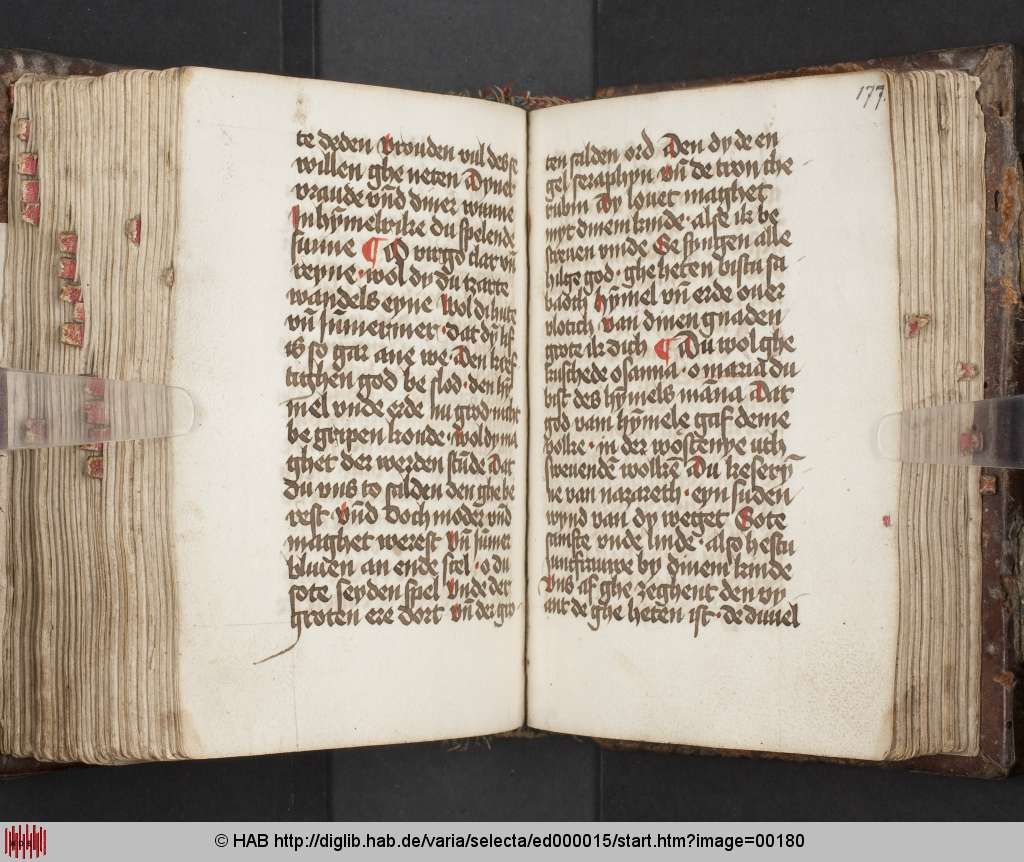 te deden vrouden vul des se
willen ghe neten Dyner
vraude vnd diner wunne
In hȳmelrike du spelende
sunne ¶ O virgo clar vn̄
reyne · wol dy du tzarte
wandels eyne Wol di hute
vn̄ ſūmermer · dat dȳ lif
is so gar ane we · Den kref
tichen god be slod · den hȳ
mel vnde erde nu grod macht
be gripen konde · Wol dy ma
ghet der werden stūde Dat
du vns to salden den ghe be
rest · vn̄d doch moder vn̄d
maghet werest Vn̄ ſūmer
bliuen an ende stel · o du
sote seyden spiel Vnde der
groten ere dort Vn̄ der gro
177.
ten salden ord Den dy de en
gel seraphyn vn̄ de tron che
rubin Dy louet maghet
myt dinem kinde · alse ik be
screuen vnde Se syngen alle
hilge god · ghe heten bistu sa
baoth Hymel vn̄ erde ouer
vlotich · van dinen gnaden
grote ik dich ¶ Du wol ghe
kuschede osanna · o maria du
bist des hȳmels māna Dat
god vam hȳmele gaf deme
volke · in der wostenye vth
sweuende wolkē Du keserȳ
ne van nazareth · eyn suden
wynd van dy weget Sote
samfte vnde linde · also hestu
iuncfrauwe by dinem kinde
Vns af ghe zeghent den vy
ant de ghe heten ist · de duuel
© HAB http://diglib.hab.de/varia/selecta/ed000015/start.htm?image=00180